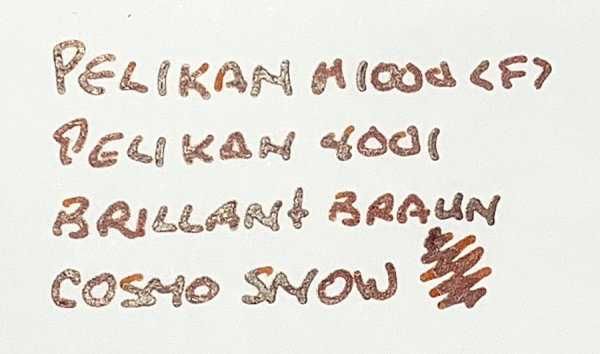 PELIKAN M1000 (F)
PELIKAN 4001
BRILLANT BRAUN
COSMO SNOW